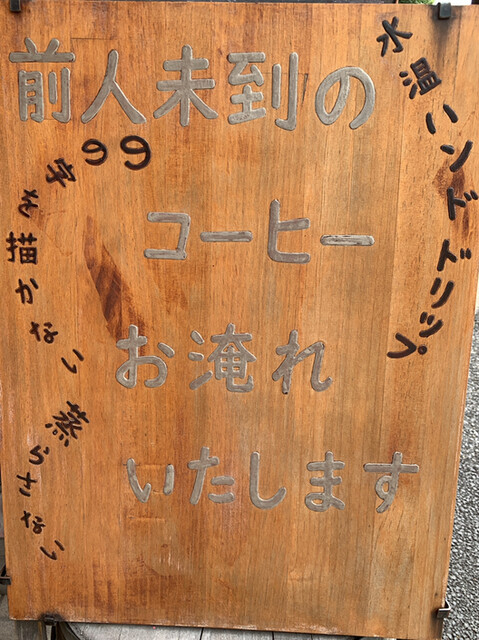 前人未到の
コーヒー
お淹れ
いたします
水温ハンドドリップ
のの字を描かない
蒸らさない